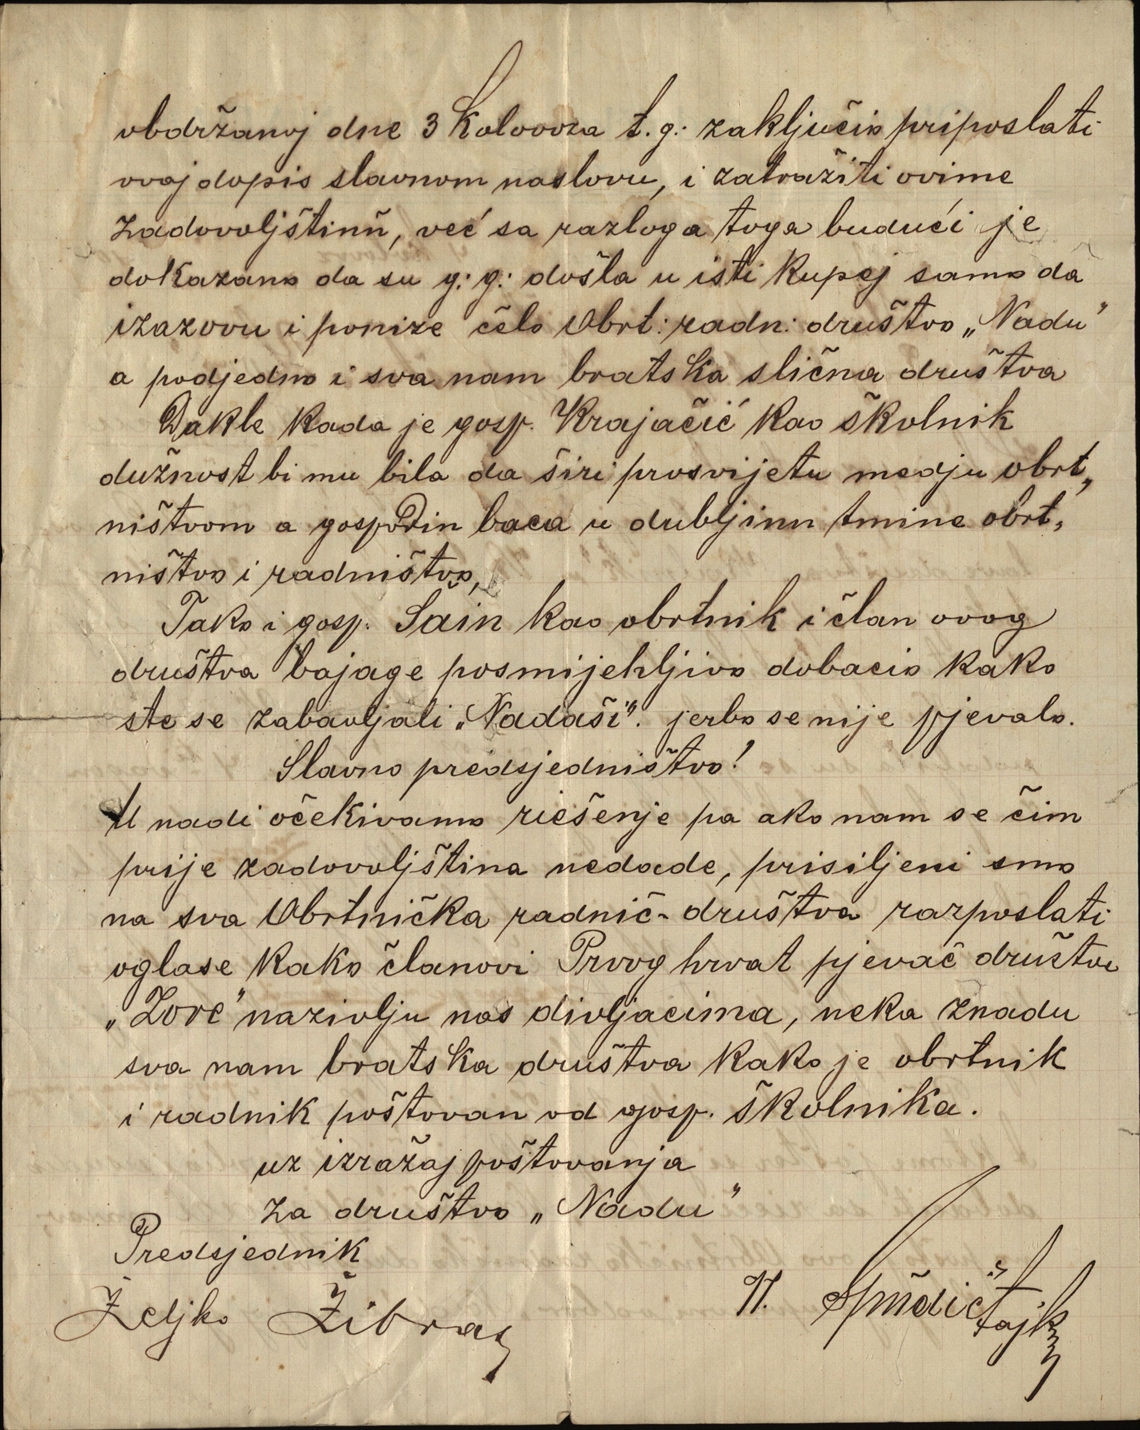 obdržanoj dne 3 Kolovoza t. g. zaključio priposlati
ovaj dopis slavnom naslovu, i zatražiti ovime
zadovoljštinu, već sa razloga toga budući je
dokazano da su g. g. došla u isti kupej samo da
izazovu i ponize čelo Obrt: radn: društvo „Nadu"
a podjedno i sva nam bratska slična društva
Dakle kada je gosp. Krajačić kao školnik
dužnost bi mu bila da širi prosvijetu medju obrt„
ništvom a gospodin baca u dubljinu tmine obrt,
ništvo i radništvo,
Tako i gosp. Šain kao obrtnik i član ovog
društva bajage posmijehljivo dobacio kako
ste se zabavljali „Nadaši". jerbo se nije pjevalo.
Slavno predsjedništvo!
U nadi očekivamo riešenje pa ako nam se čim
prije zadovoljština nedade, prisiljeni smo
na sva Obrtnička radnič- društva razposlati
oglase kako članovi Prvog hrvat pjevač društva
„Zore" nazivlju nas divljacima, neka znadu
sva nam bratska društva kako je obrtnik
i radnik poštovan od gosp. školnika.
uz izražaj poštovanja
za društvo „Nadu"
Predsjednik
Željko Žibrag
N.
tajk